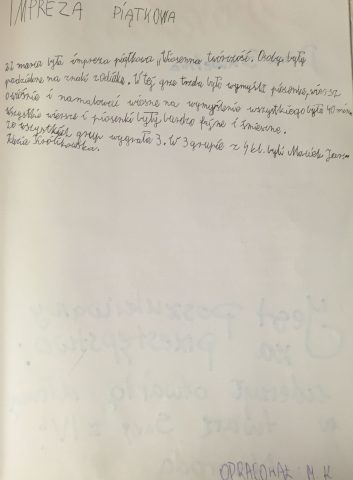 IMPREZA PIĄTKOWA
21 marca była impreza piątkowa „Wiosenna twórczość". Osoby były
podzielone na znaki zodiaku. W tej grze trzeba było wymyślić piosenkę, wiersz
o wiośnie i namalować wiosnę na wymyślenie wszystkiego było 40 minut.
Wszystkie wiersze i piosenki były bardzo fajne i śmieszne.
Ze wszystkich grup wygrała 3. W 3 grupie z 4 kl. byli Maciek Jan
Królikowska.
Jest poszukiwany
za przestępstwo
OPRACOWAŁ M. K